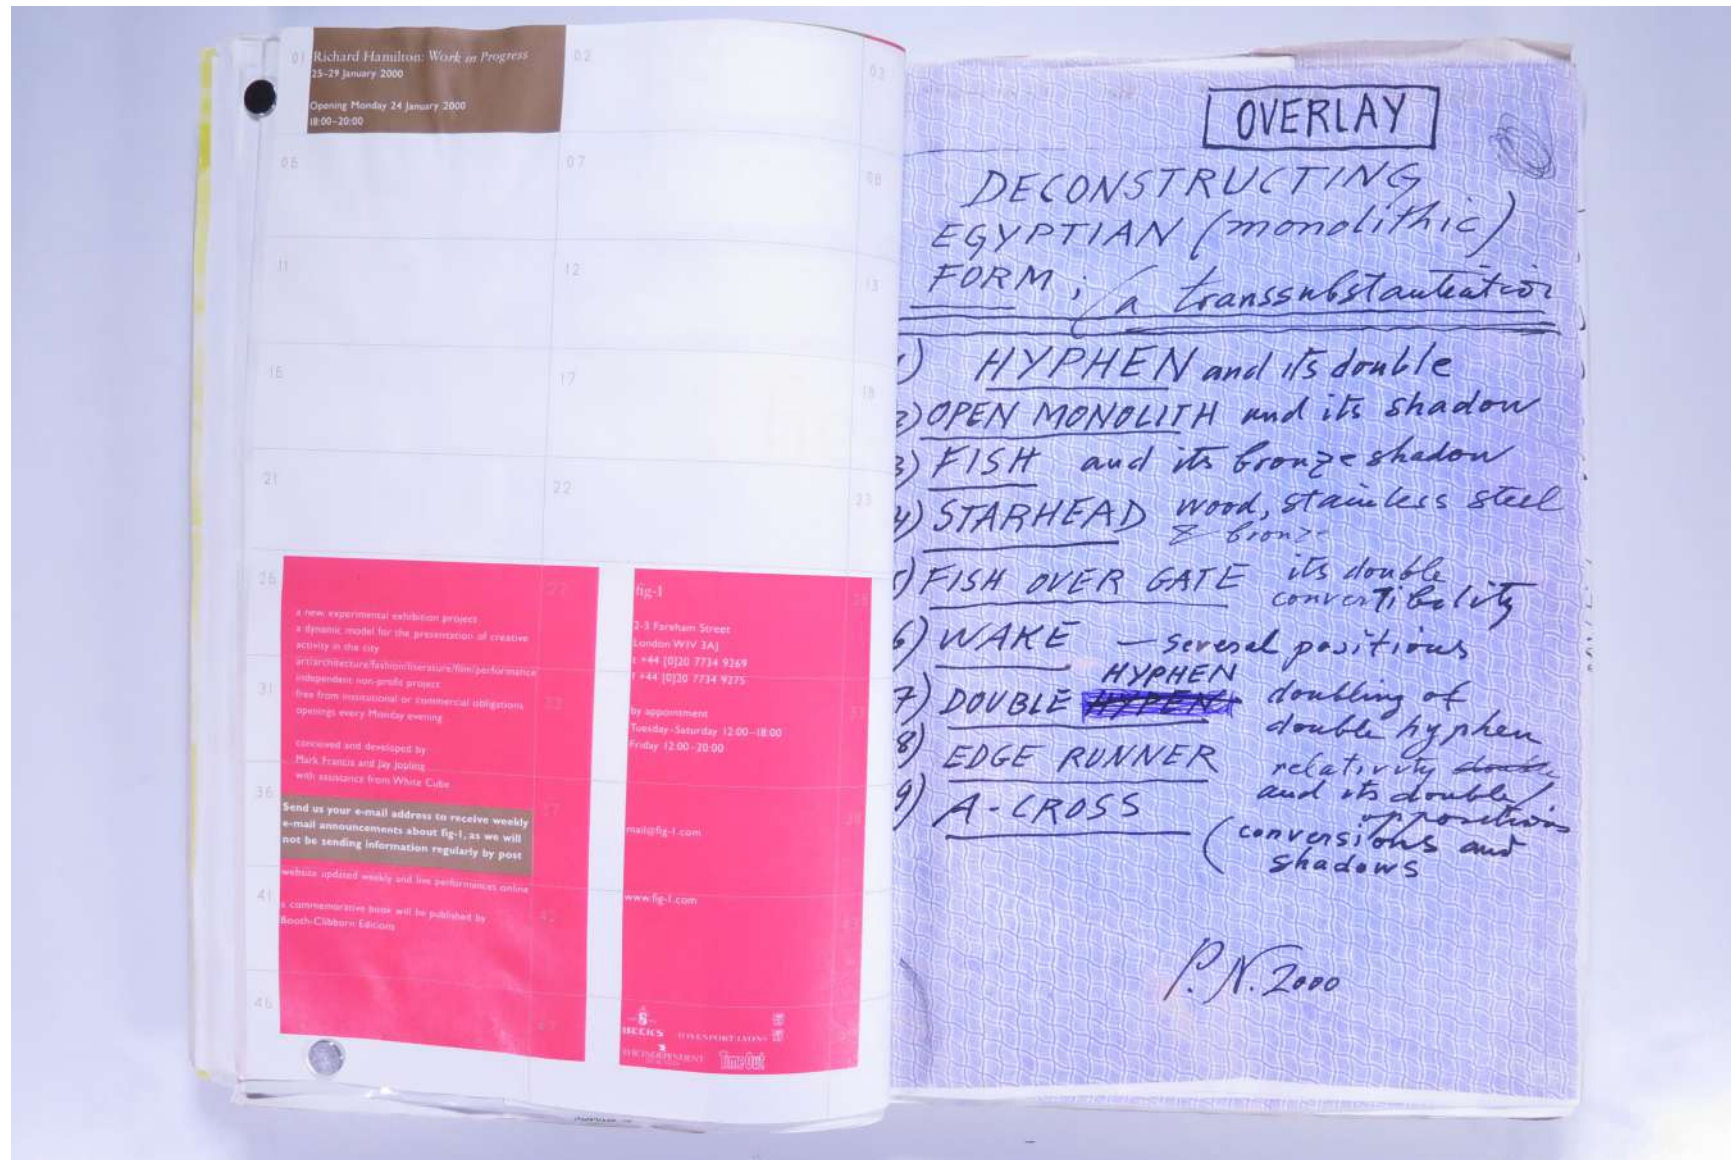 01
Richard Hamilton: Work in Progress
25-29 January 2000
Opening Monday 24 January 2000
18:00-20:00
02
03
06
07
08
11
12
13
16
17
18
21
22
23
26
27
28
a new experimental exhibition project
a dynamic model for the presentation of creative
activity in the city
art/architecture/fashion/literature/film/performance
independent non-profit project
free from institutional or commercial obligations
openings every Monday evening
31
32
33
conceived and developed by
Mark Francis and Jay Jopling
with assistance from White Cube
36
37
38
Send us your e-mail address to receive weekly
e-mail announcements about fig-1, as we will
not be sending information regularly by post
website updated weekly and live performances online
41
42
43
a commemorative book will be published by
Booth-Clibborn Editions
46
47
fig-1
2-3 Fareham Street
London W1V 3AJ
t +44 [0]20 7734 9269
f +44 [0]20 7734 9275
by appointment
Tuesday-Saturday 12:00-18:00
Friday 12:00-20:00
mail@fig-1.com
www.fig-1.com
BECKS DAVENPORT LYONS
THE INDEPENDENT
Time Out
OVERLAY
DECONSTRUCTING
EGYPTIAN (monolithic)
FORM; (a transsubstantiation
1) HYPHEN and its double
2) OPEN MONOLITH and its shadow
3) FISH and its bronze shadow
4) STARHEAD wood, stainless steel
& bronze
5) FISH OVER GATE its double
convertibility
6) WAKE — several positions
HYPHEN
7) DOUBLE HYPEN doubling of
double hyphen
8) EDGE RUNNER relativity double
and its double/
oppositions
9) A-CROSS (conversions and
shadows
P.N. 2000